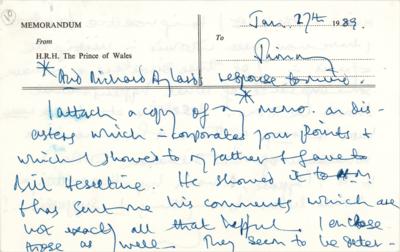 10
MEMORANDUM
Jan. 27th 1989.
From
To
H.R.H. The Prince of Wales
* And Richard Aylard's response to mine.
I attach a copy of my * memo. on dis-
asters which incorporates your points +
which I showed to my father + gave to
Bill Heseltine. He showed it to
+ has sent me his comments which are
not exactly all that helpful. I enclose
those as well. They seem to be